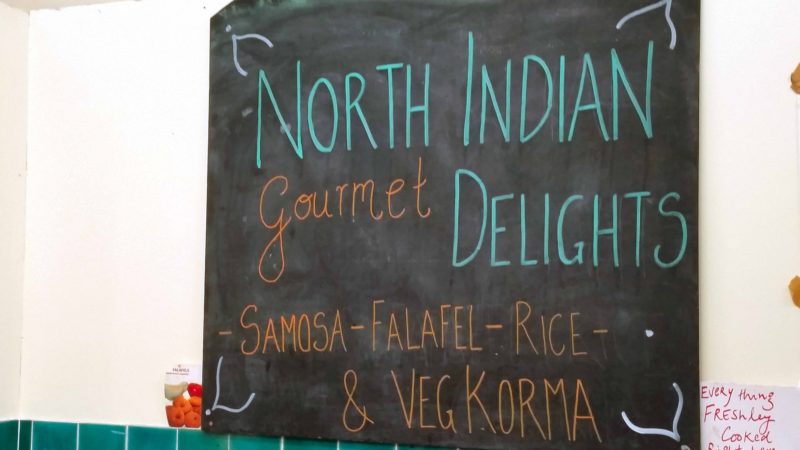 NORTH INDIAN
Gourmet DELIGHTS
- SAMOSA - FALAFEL - RICE -
& VEG KORMA
Every thing
FRESHLEY
Cooked